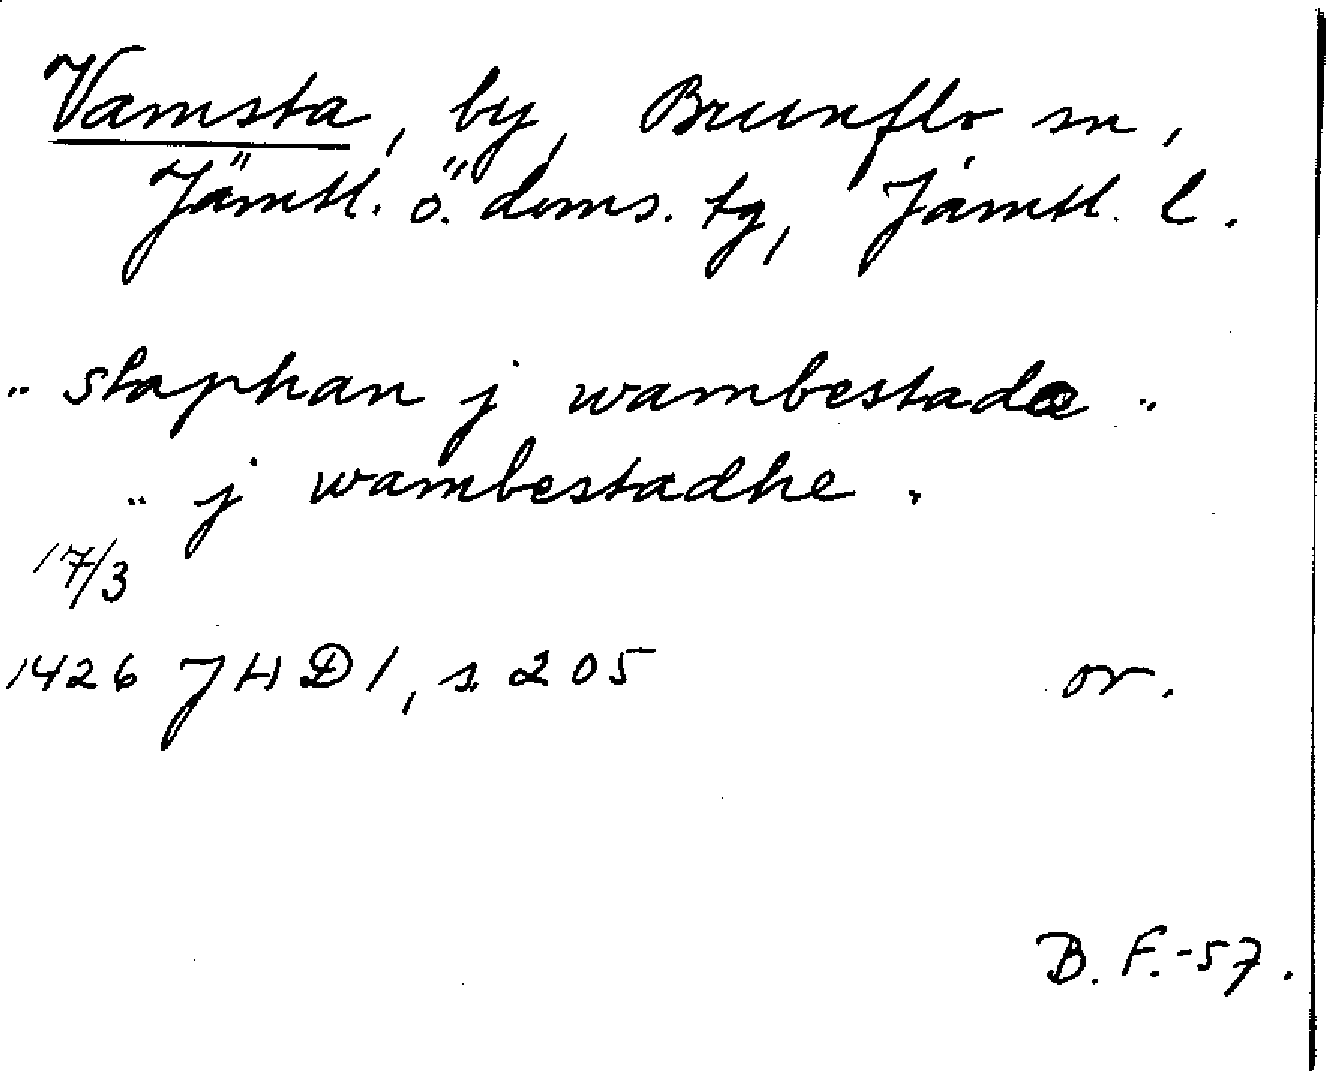 Vamsta, by, Brunflo sn,
Jämtl. ö. doms. tg, Jämtl. l.
„ staphan j wambestadæ „
„ j wambestadhe „
17/3
1426 JHD 1, s 205 or.
B. F.-57.